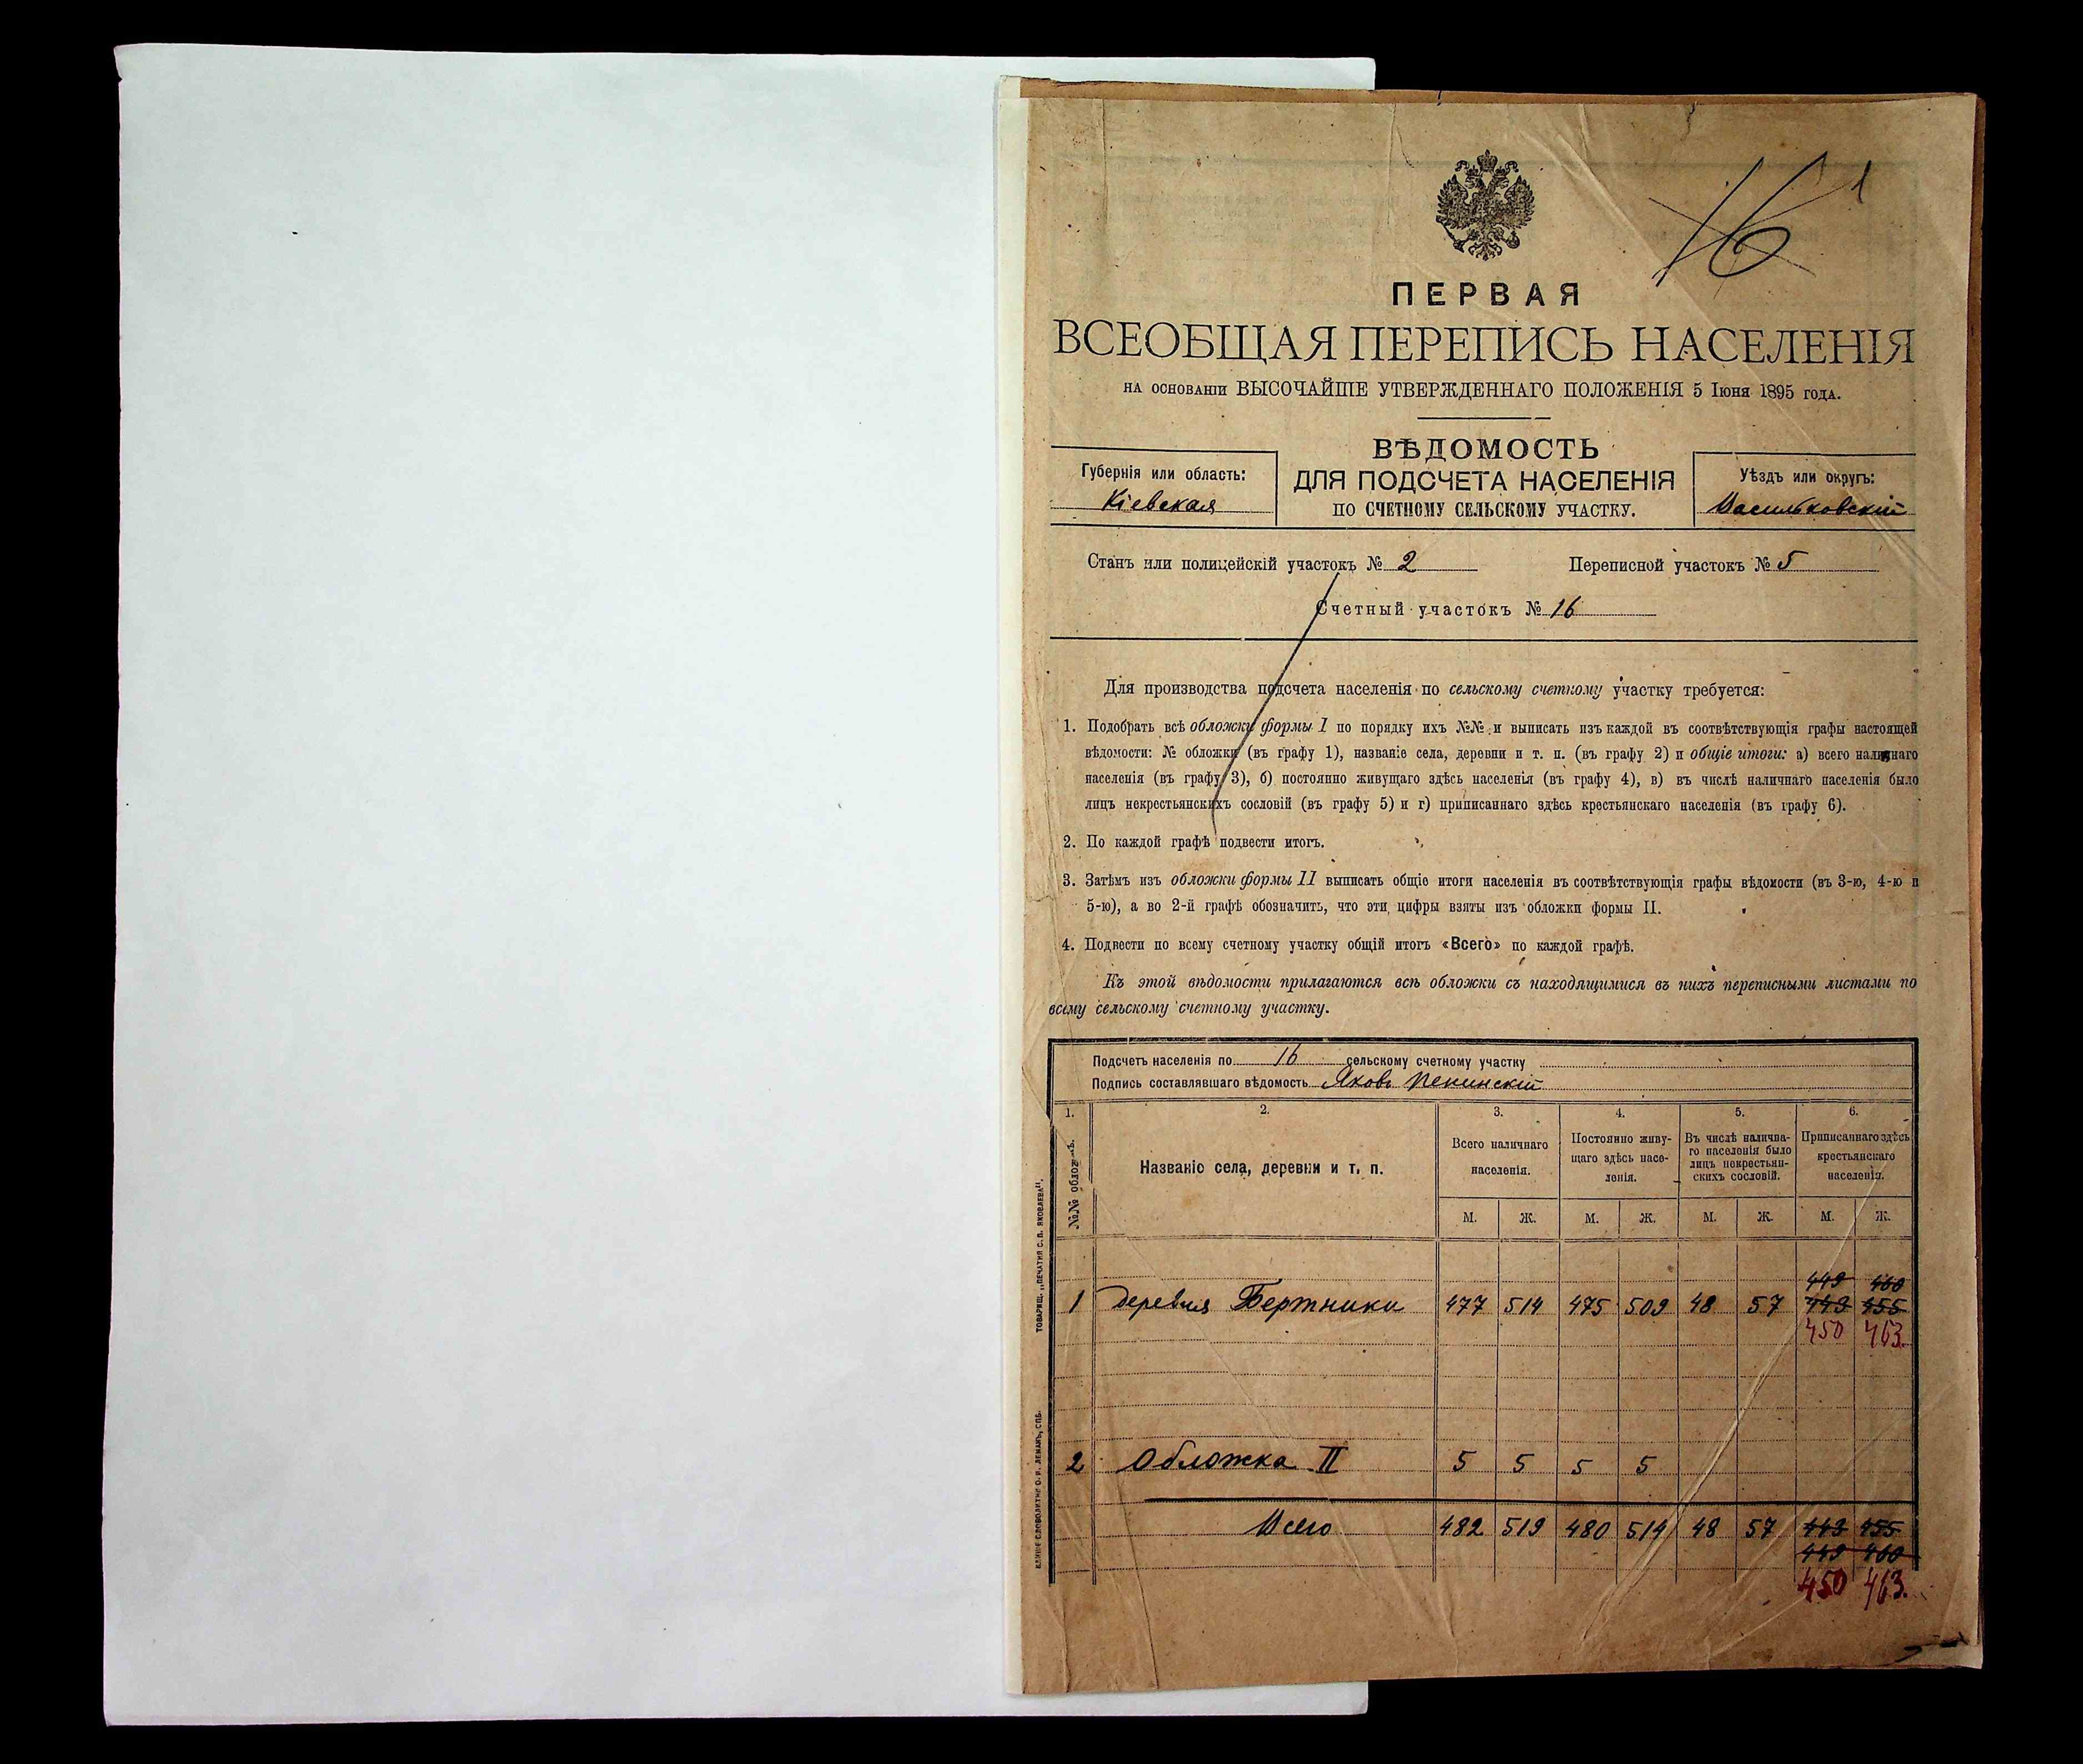 16
1
ПЕРВАЯ
ВСЕОБЩАЯ ПЕРЕПИСЬ НАСЕЛЕНІЯ
на основаніи ВЫСОЧАЙШЕ УТВЕРЖДЕННАГО ПОЛОЖЕНІЯ 5 Іюня 1895 года.
ВѢДОМОСТЬ
ДЛЯ ПОДСЧЕТА НАСЕЛЕНІЯ
ПО СЧЕТНОМУ СЕЛЬСКОМУ УЧАСТКУ.
Губернія или область:
Кіевская
Уѣздъ или округъ:
Васильковскій
Станъ или полицейскій участокъ № 2 Переписной участокъ № 5
Счетный участокъ № 16
Для производства подсчета населенія по сельскому счетному участку требуется:
1. Подобрать всѣ обложки формы I по порядку ихъ №№ и выписать изъ каждой въ соотвѣтствующія графы настоящей
вѣдомости: № обложки (въ графу 1), названіе села, деревни и т. п. (въ графу 2) и общіе итоги: а) всего наличнаго
населенія (въ графу 3), б) постоянно живущаго здѣсь населенія (въ графу 4), в) въ числѣ наличнаго населенія было
лицъ некрестьянскихъ сословій (въ графу 5) и г) приписаннаго здѣсь крестьянскаго населенія (въ графу 6).
2. По каждой графѣ подвести итогъ.
3. Затѣмъ изъ обложки формы II выписать общіе итоги населенія въ соотвѣтствующія графы вѣдомости (въ 3-ю, 4-ю и
5-ю), а во 2-й графѣ обозначить, что эти цифры взяты изъ обложки формы II.
4. Подвести по всему счетному участку общій итогъ «Всего» по каждой графѣ.
Къ этой вѣдомости прилагаются всѣ обложки съ находящимися въ нихъ переписными листами по
всему сельскому счетному участку.
Подсчетъ населенія по 16 сельскому счетному участку
Подпись составлявшаго вѣдомость Яковъ Пекинскій
1. 2. 3. 4. 5. 6.
№№ обложекъ.
Названіе села, деревни и т. п.
Всего наличнаго
населенія.
Постоянно живу-
щаго здѣсь насе-
ленія.
Въ числѣ налична-
го населенія было
лицъ некрестьян-
скихъ сословій.
Приписаннаго здѣсь
крестьянскаго
населенія.
М. Ж. М. Ж. М. Ж. М. Ж.
449 460
1 деревня Бертники 477 514 475 509 48 57 443 455
450 463.
2 Обложка II 5 5 5 5
Всего 482 519 480 514 48 57 443 455
449 460
450 463.
ТОВАРИЩ. „ПЕЧАТНЯ С. П. ЯКОВЛЕВА".
КЛИШЕ СЛОВОЛИТНИ О. И. ЛЕМАНЪ, СПБ.